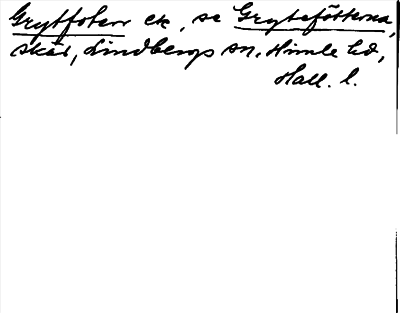 Grytfoten ek, se Grytefötterna,
skär, Lindbergs sn, Himle hd,
Hall. l.